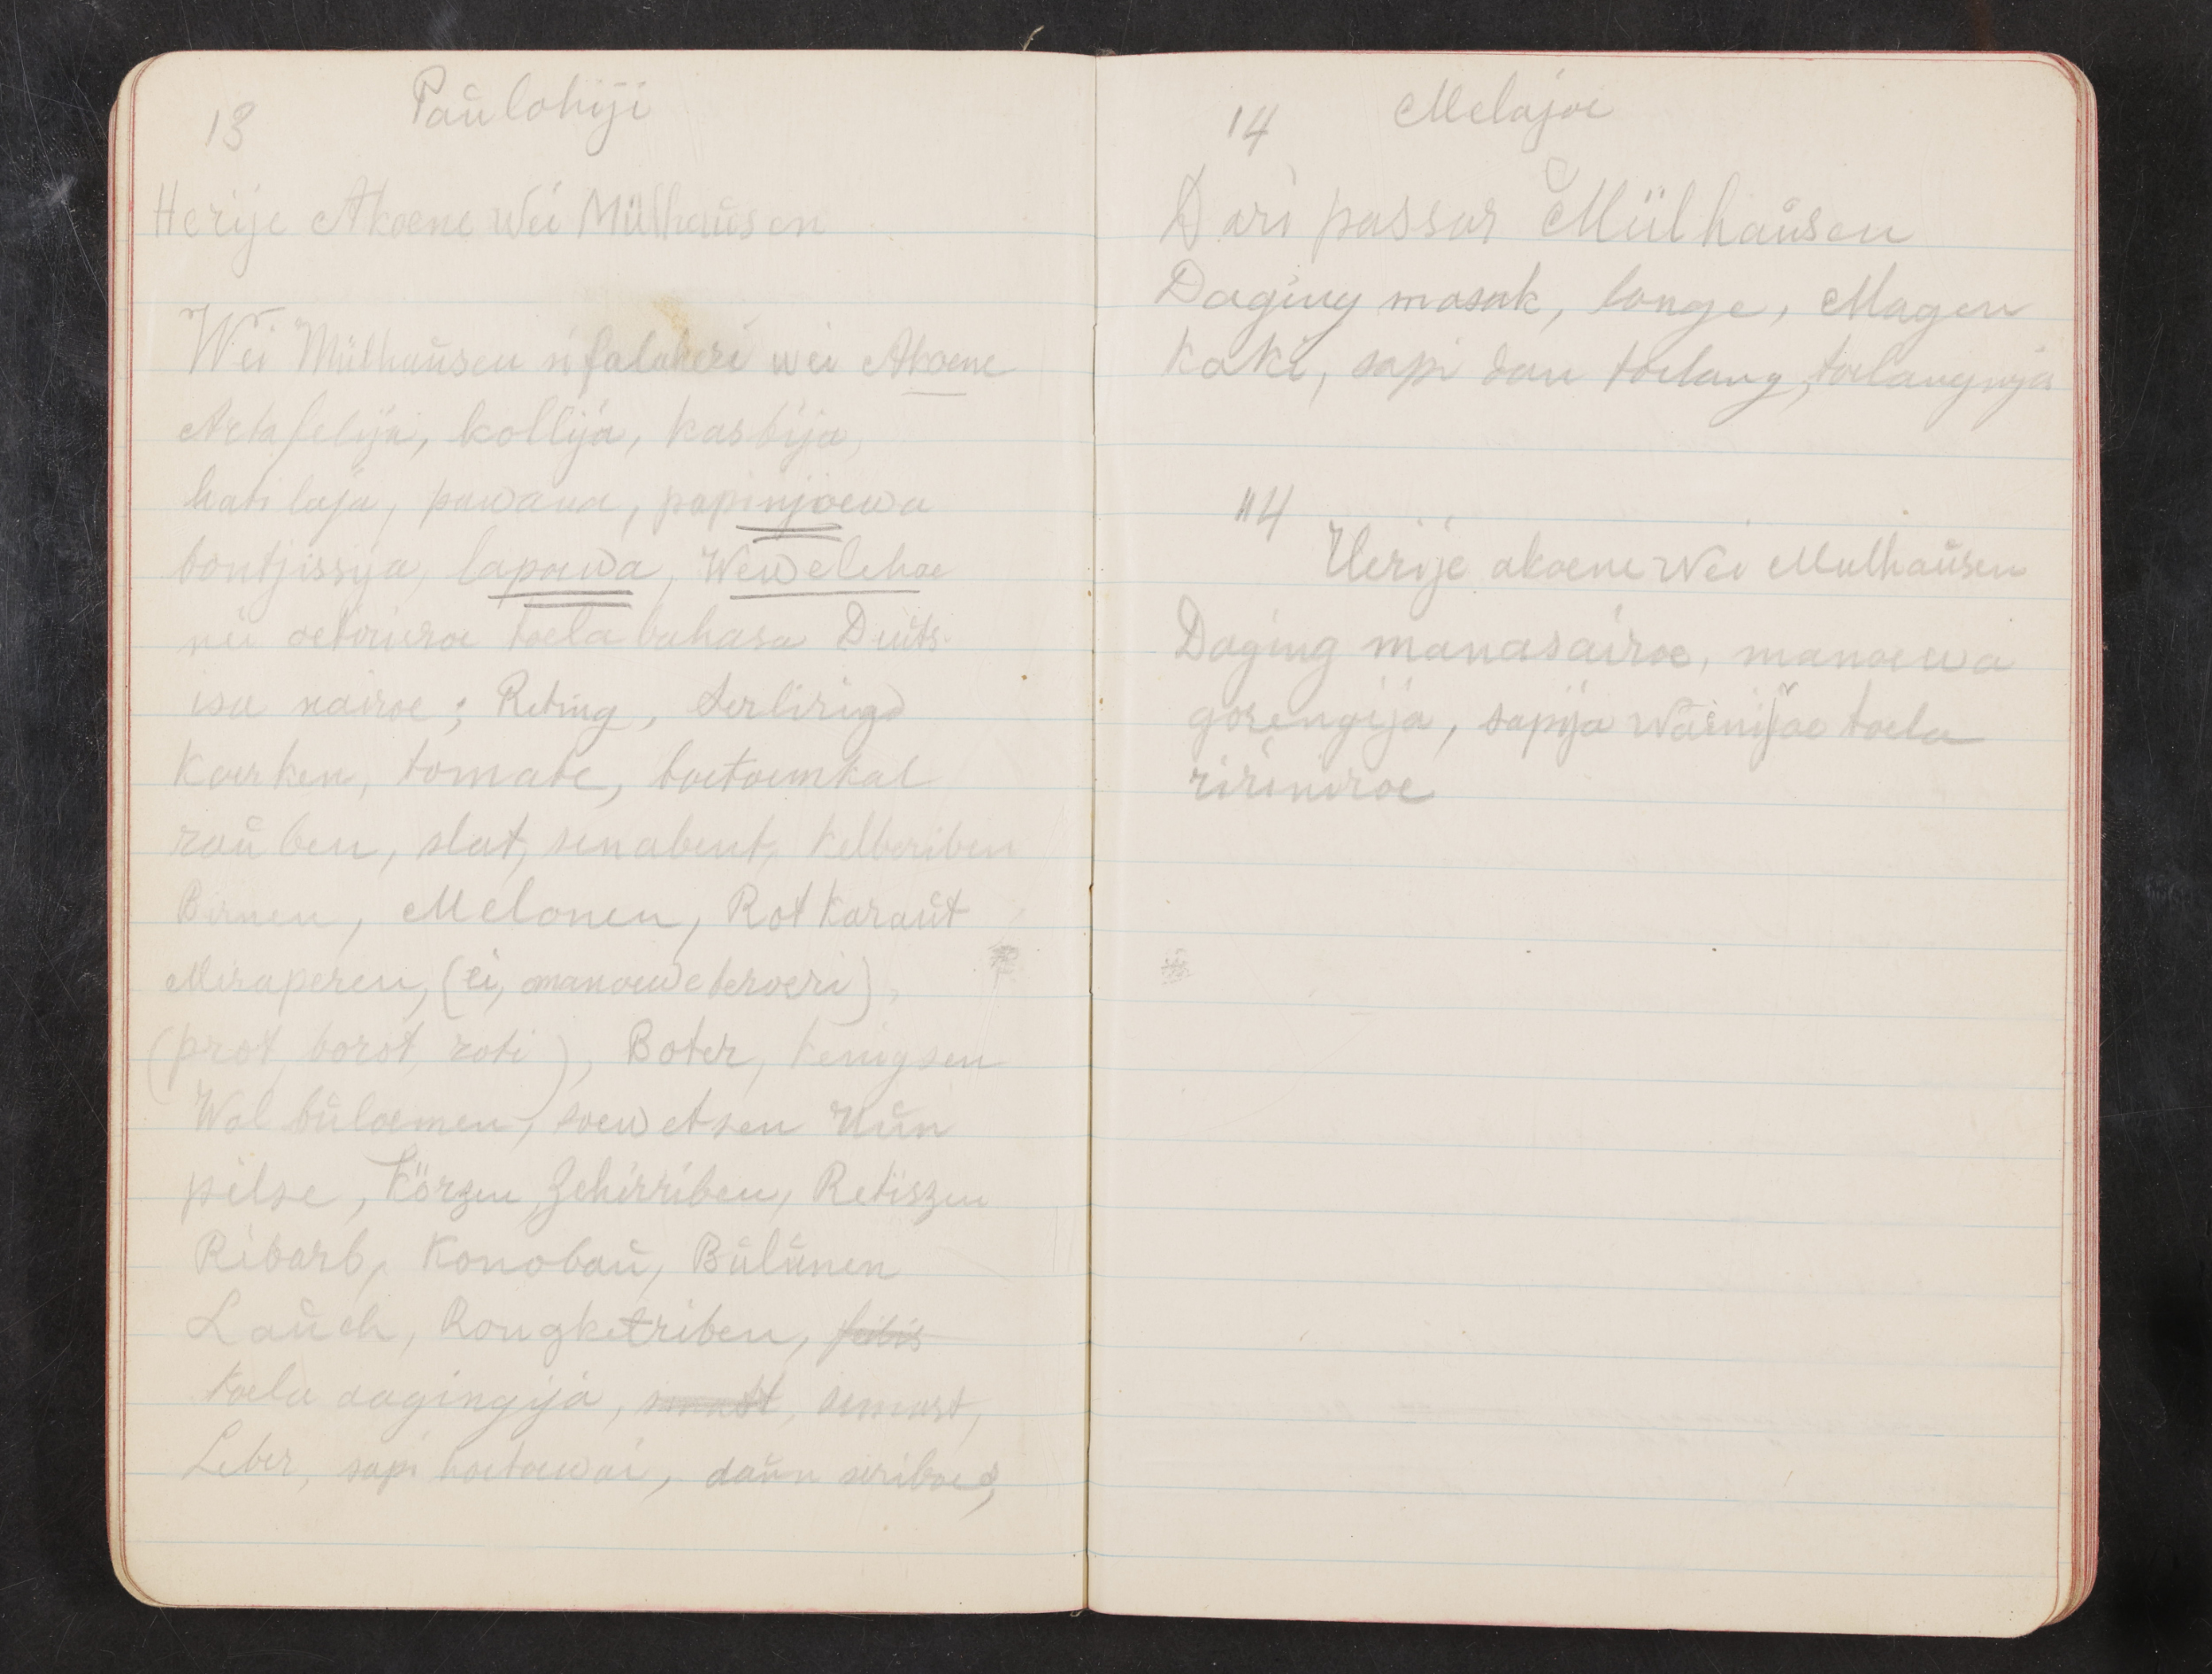 13 Paŭlohiji
Herije Akoene wei Mülhaŭsen
Wei Mülhaŭsen ni falaheri wei Akoene
Artafelija, kollija, kasbija,
hatilaja, pawana, papinjoewa
bontjissija, lapoewa, Wewelehoe
oetoieroe toela bahasa Duits
isa nairoe; Reting, serlirig
Koerken, tomate, toetoemkal
raŭben, slat, senabent, Kelberiben
Birnen, Melonen, Rot Karaŭt
Miraperen, (ei, manoewe teroeri),
(prot, borot, roti), Boter, Kenigsen
Wol bŭloemen, soewetsen Kŭn
pilse, Körzen, Zehirriben, Retiszen
Ribarb, Konobaŭ, Bŭlŭnen
Laŭch, Rongketriben,
toela dagingija, semerst,
Leber, sapi hoetoewai, daŭn seriboe,
14 Melajoe
Dari passar Mülhaŭsen
Daging masak, longe, Magen
Kaki, sapi dan toelang, toelangnja
"4
Herije akoene wei Mulhaŭsen
Daging manasairoe, manoewa
gorengija, sapija warnijoe toela
ririniroe